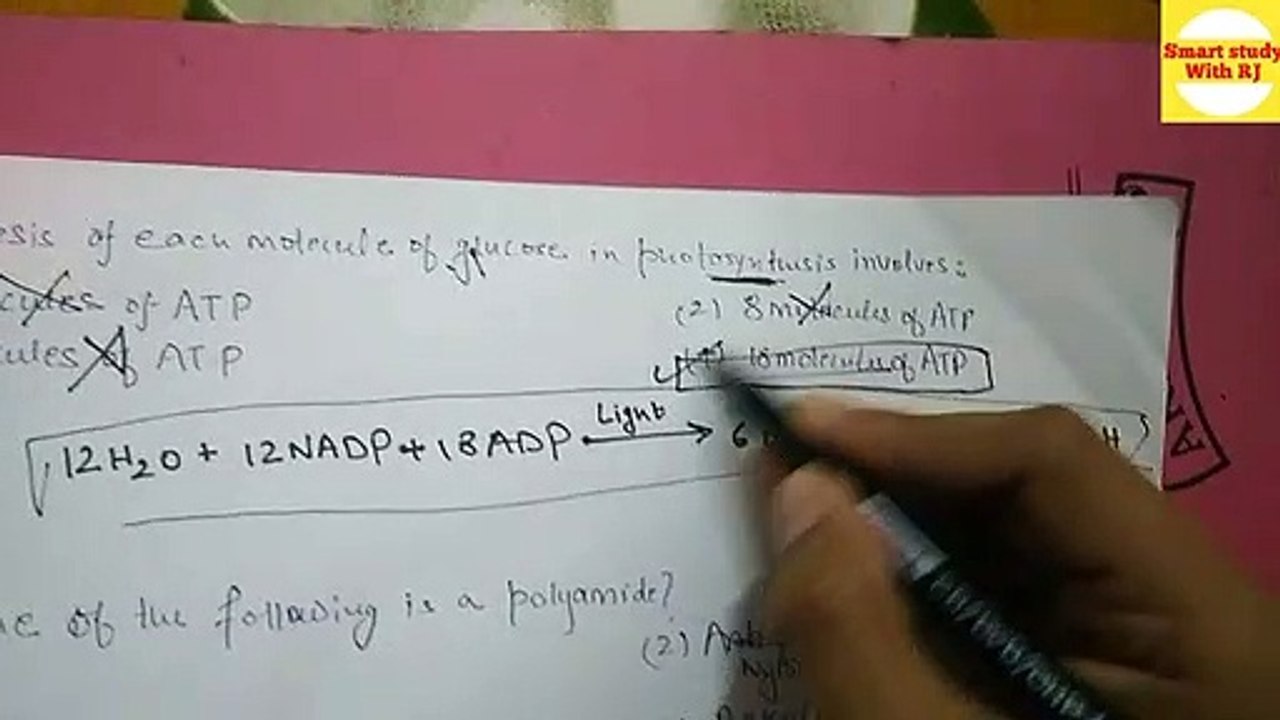 Smart study
With RJ
of each molecule of glucose in photosynthesis involves:
of ATP
(2) 8 molecules of ATP
ATP
(4) 18 molecules of ATP
12H2O + 12NADP + 18ADP Light → 6
H
of the following is a polyamide?
(2)